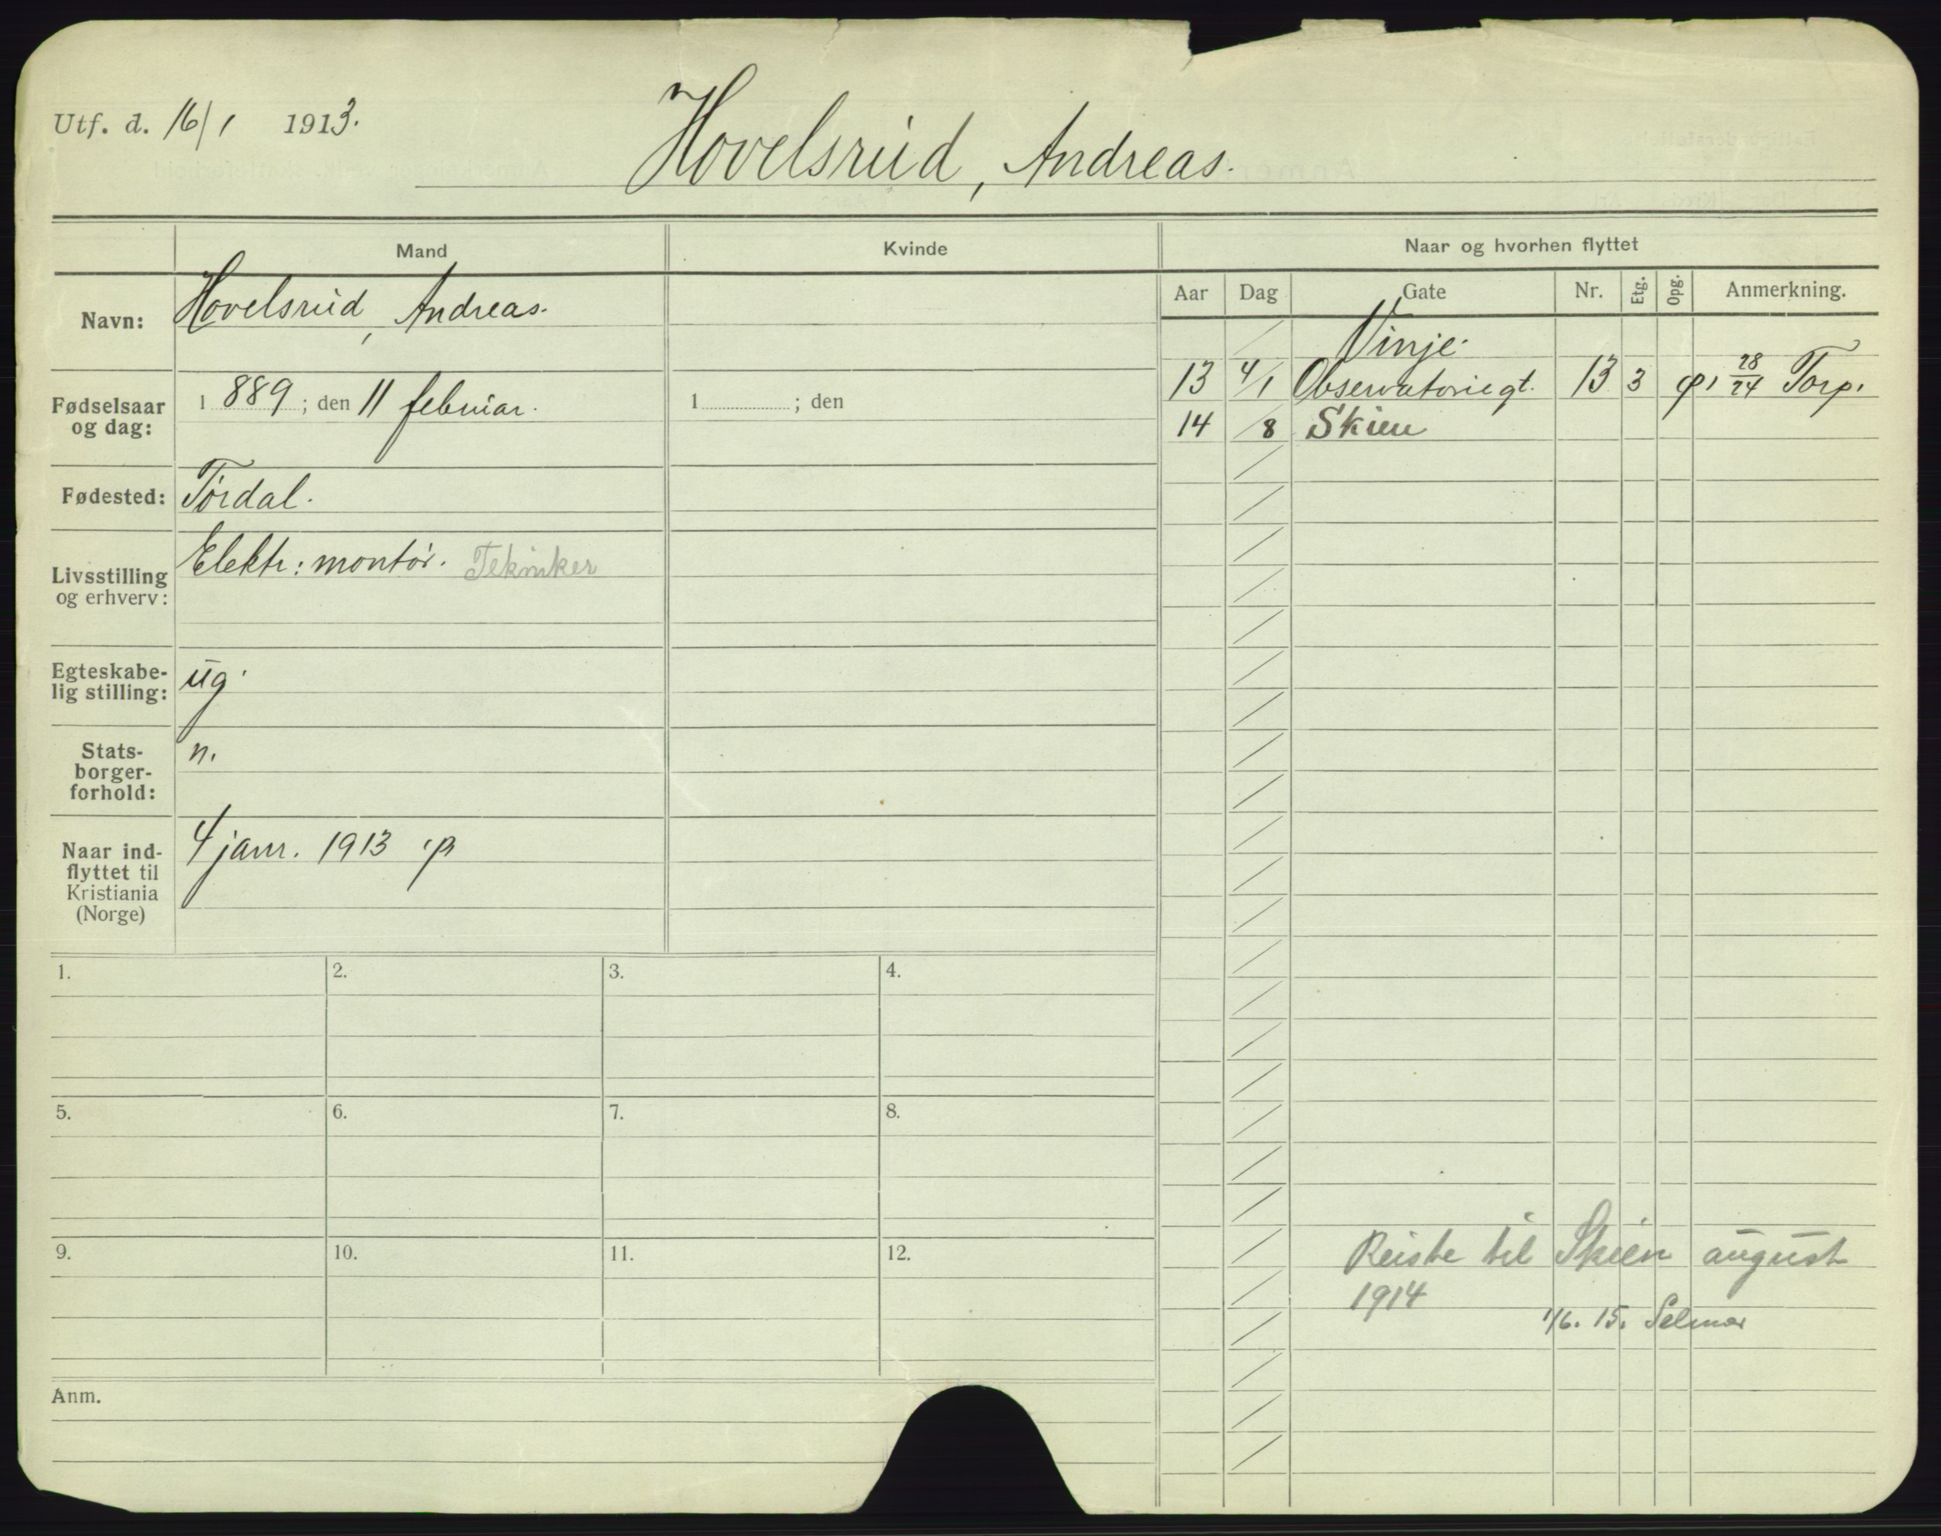 Utf. d. 16/1 1913.
Hovelsrud, Andreas.
Mand
Kvinde
Naar og hvorhen flyttet
Aar Dag Gate Nr. Etg. Opg. Anmerkning.
Navn: Hovelsrud, Andreas.
Vinje.
13 4/1 Observatoriegt. 13 3 28/24 Torp.
Fødselsaar og dag: 1889; den 11 februar.
1 ; den
14 /8 Skien
Fødested: Tørdal.
Livsstilling og erhverv: Elektr: montør. Tekniker
Egteskabe-
lig stilling: ug.
Stats-
borger-
forhold: n.
Naar ind-
flyttet til
Kristiania
(Norge)
4 janr. 1913
1. 2. 3. 4.
5. 6. 7. 8.
9. 10. 11. 12.
Reiste til Skien august
1914
1/6. 15. Selmer
Anm.